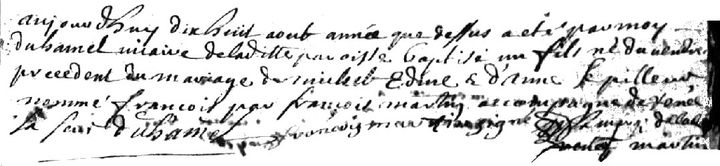 aujourdhuy dix huit aout année que dessus a eté par moy
duhamel vicaire de laditte paroisse baptisé un fils né du vendredi
precedent du mariage de michel Edine & d'anne le pilleur
nommé francois par francois martin accompagné de renée
la seur duhamel francois martin signe
renee martin